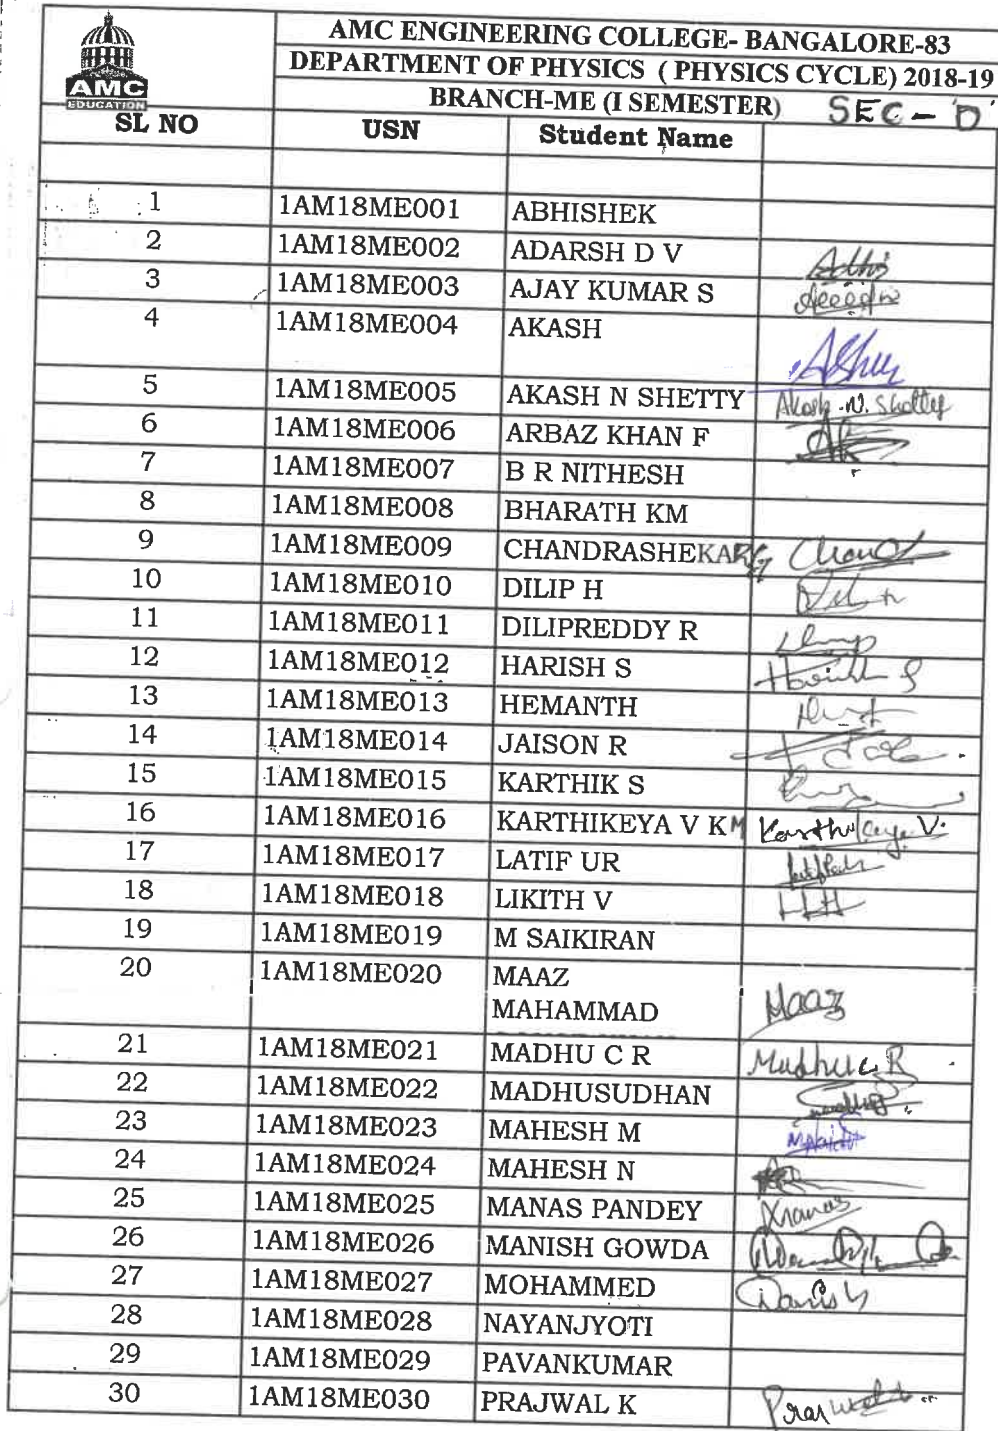 AMC
EDUCATION
AMC ENGINEERING COLLEGE- BANGALORE-83
DEPARTMENT OF PHYSICS ( PHYSICS CYCLE) 2018-19
BRANCH-ME (I SEMESTER) SEC - 'D'
SL NO USN Student Name
1 1AM18ME001 ABHISHEK
2 1AM18ME002 ADARSH D V
3 1AM18ME003 AJAY KUMAR S
4 1AM18ME004 AKASH
5 1AM18ME005 AKASH N SHETTY Akash .N. Shetty
6 1AM18ME006 ARBAZ KHAN F
7 1AM18ME007 B R NITHESH
8 1AM18ME008 BHARATH KM
9 1AM18ME009 CHANDRASHEKAR
10 1AM18ME010 DILIP H
11 1AM18ME011 DILIPREDDY R
12 1AM18ME012 HARISH S Harish S
13 1AM18ME013 HEMANTH
14 1AM18ME014 JAISON R
15 1AM18ME015 KARTHIK S
16 1AM18ME016 KARTHIKEYA V K M Karthikeya V.
17 1AM18ME017 LATIF UR
18 1AM18ME018 LIKITH V
19 1AM18ME019 M SAIKIRAN
20 1AM18ME020 MAAZ
MAHAMMAD Maaz
21 1AM18ME021 MADHU C R Madhu C R
22 1AM18ME022 MADHUSUDHAN
23 1AM18ME023 MAHESH M
24 1AM18ME024 MAHESH N
25 1AM18ME025 MANAS PANDEY Manas
26 1AM18ME026 MANISH GOWDA
27 1AM18ME027 MOHAMMED Danish
28 1AM18ME028 NAYANJYOTI
29 1AM18ME029 PAVANKUMAR
30 1AM18ME030 PRAJWAL K Prajwal